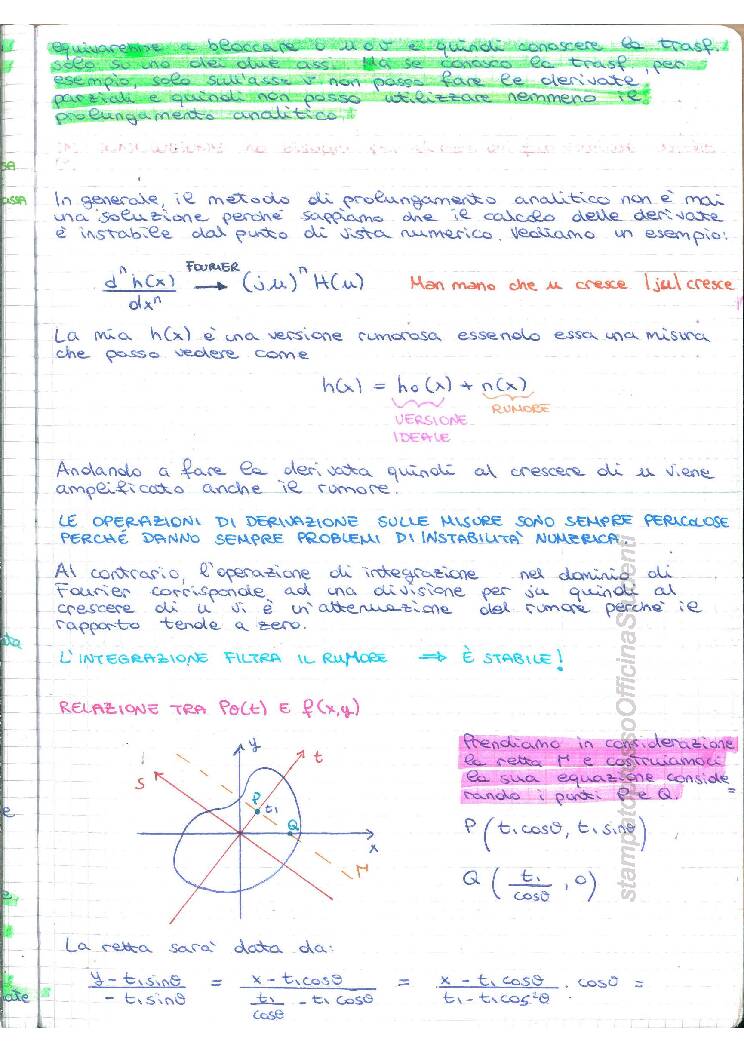 equivarrebbe a bloccare o u o v e quindi conoscere la trasf.
solo su uno dei due assi. Ma se conosco la trasf, per
esempio, solo sull'asse v non posso fare le derivate
parziali e quindi non posso utilizzare nemmeno il
prolungamento analitico.
In generale, il metodo di prolungamento analitico non è mai
una soluzione perché sappiamo che il calcolo delle derivate
è instabile dal punto di vista numerico. Vediamo un esempio:
dⁿh(x)/dxⁿ FOURIER → (ju)ⁿ H(u) Man mano che u cresce |ju| cresce
La mia h(x) è una versione rumorosa essendo essa una misura
che posso vedere come
h(x) = h₀(x) + n(x)
VERSIONE IDEALE RUMORE
Andando a fare la derivata quindi al crescere di u viene
amplificato anche il rumore.
LE OPERAZIONI DI DERIVAZIONE SULLE MISURE SONO SEMPRE PERICOLOSE
PERCHÉ DANNO SEMPRE PROBLEMI DI INSTABILITÀ NUMERICA.
Al contrario, l'operazione di integrazione nel dominio di
Fourier corrisponde ad una divisione per ju quindi al
crescere di u vi è un'attenuazione del rumore perché il
rapporto tende a zero.
L'INTEGRAZIONE FILTRA IL RUMORE ⇒ È STABILE!
RELAZIONE TRA Pθ(t) E f(x,y)
y t
S
P t₁
Q
x
M
Prendiamo in considerazione
la retta M e costruiamoci
la sua equazione conside=
rando i punti P e Q.
P (t₁cosθ, t₁sinθ)
Q (t₁/cosθ, 0)
La retta sarà data da:
(y - t₁sinθ)/(- t₁sinθ) = (x - t₁cosθ)/(t₁/cosθ - t₁cosθ) = (x - t₁cosθ)/(t₁ - t₁cos²θ) · cosθ =
stampatopressoOfficinaStudenti